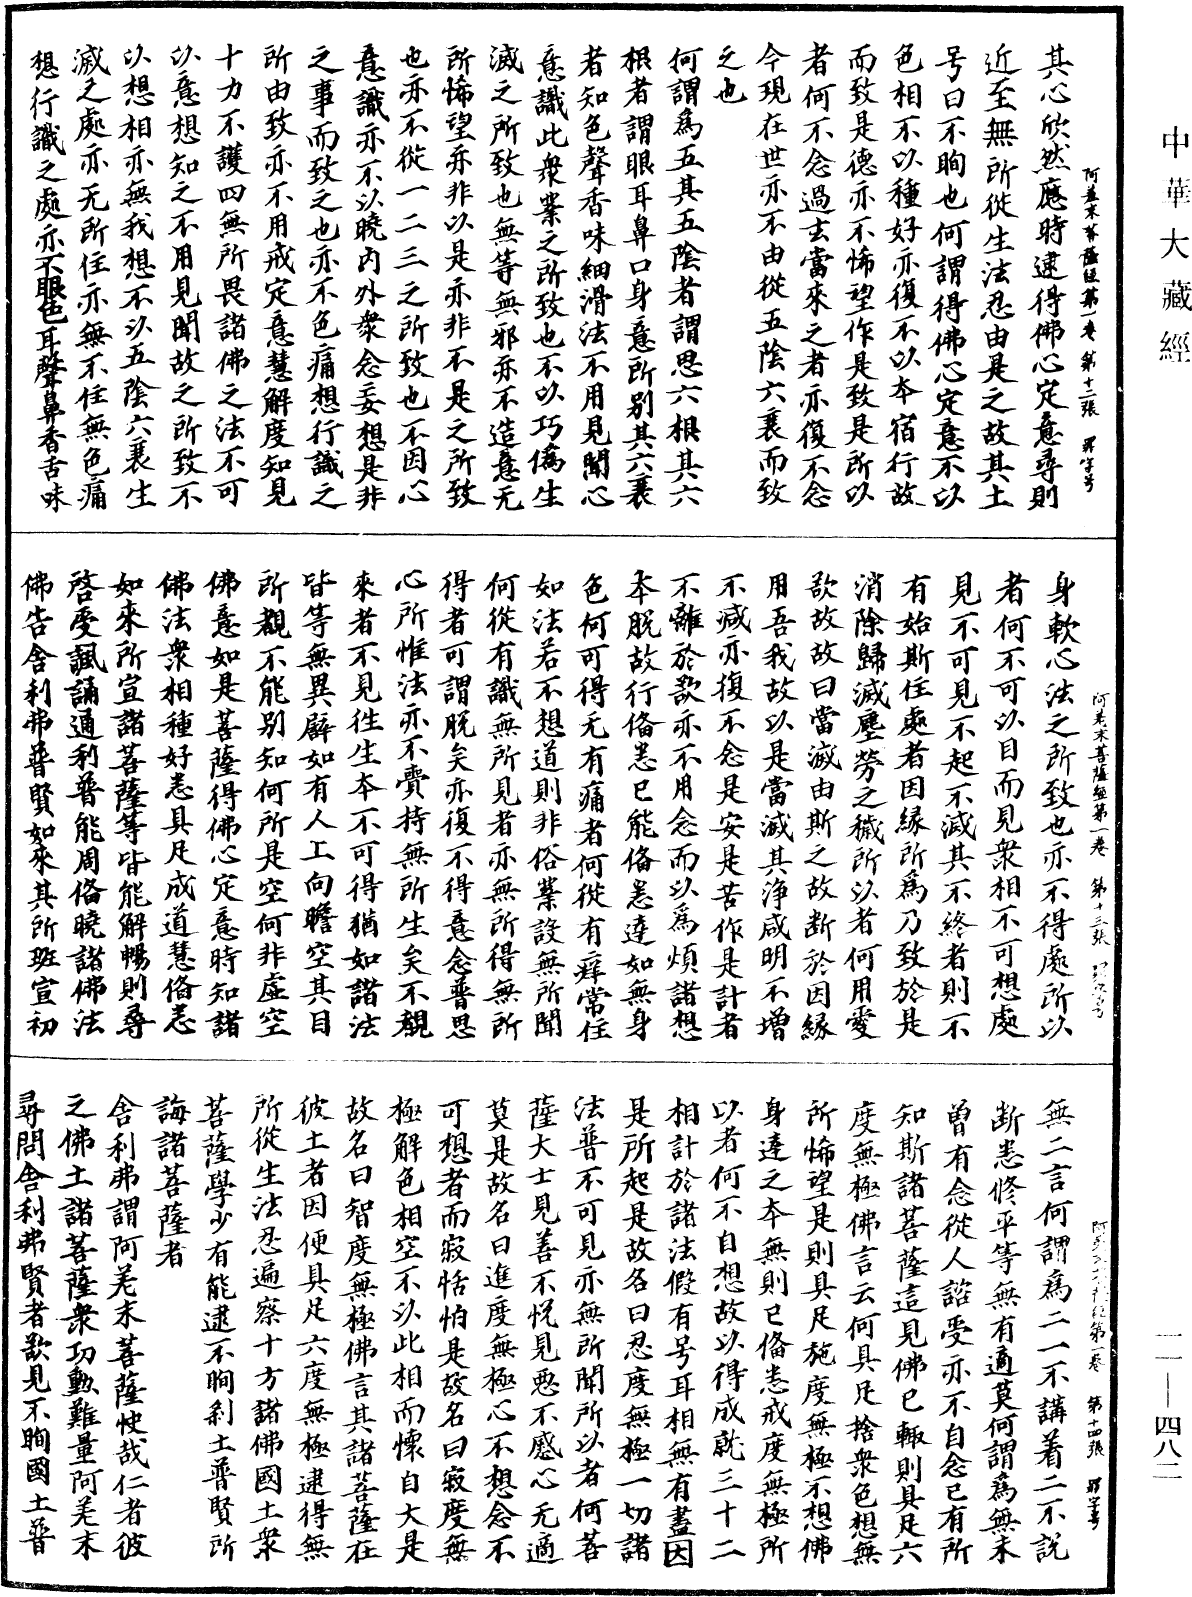 中華大藏經
阿差末菩薩經第一卷 第十二張 罪字号
其心欣然應時逮得佛心定意尋則
近至無所從生法忍由是之故其土
号曰不眴也何謂得佛心定意不以
色相不以種好亦復不以本宿行故
而致是德亦不悕望作是致是所以
者何不念過去當來之者亦復不念
今現在世亦不由從五陰六衰而致
之也
何謂為五其五陰者謂思六根其六
根者謂眼耳鼻口身意所別其六衰
者知色聲香味細滑法不用見聞心
意識此眾業之所致也不以巧偽生
滅之所致也無等無邪亦不造意无
所悕望亦非以是亦非不是之所致
也亦不從一二三之所致也不因心
意識亦不以曉內外眾念妄想是非
之事而致之也亦不色痛想行識之
所由致亦不用戒定意慧解度知見
十力不護四無所畏諸佛之法不可
以意想知之不用見聞故之所致不
以想相亦無我想不以五陰六衰生
滅之處亦无所住亦無不住無色痛
想行識之處亦不眼色耳聲鼻香舌味
阿差末菩薩經第一卷 第十三張
身軟心法之所致也亦不得處所以
者何不可以目而見眾相不可想處
見不可見不起不滅其不終者則不
有始斯住處者因緣所為乃致於是
消除歸滅塵勞之穢所以者何用愛
欲故故曰當滅由斯之故断於因緣
用吾我故以是當滅其淨咸明不增
不減亦復不念是安是苦作是計者
不離於欲亦不用念而以為煩諸想
本脫故行俻悉已能俻悉達如無身
色何可得无有痛者何從有癢常住
如法若不想道則非俗業設無所聞
何從有識無所見者亦無所得無所
得者可謂脫矣亦復不得意念普思
心所惟法亦不賣持無所生矣不覩
來者不見徃生本不可得猶如諸法
皆等無異譬如有人上向瞻空其目
所觀不能別知何所是空何非虛空
佛意如是菩薩得佛心定意時知諸
佛法衆相種好悉具足成道慧俻悉
如來所宣諸菩薩等皆能解暢則尋
啓受諷誦通利普能周俻曉諸佛法
佛告舍利弗普賢如來其所班宣初
第一卷 第十四張 罪字号
無二言何謂為二一不講着二不說
断悉修平等無有適莫何謂為無未
曾有念從人諮受亦不自念已有所
知斯諸菩薩這見佛已輙則具足六
度無極佛言云何具足捨衆色想無
所悕望是則具足施度無極不想佛
身達之本無則已俻悉戒度無極所
以者何不自想故以得成就三十二
相計於諸法假有号耳相無有盡因
是所起是故名曰忍度無極一切諸
法普不可見亦無所聞所以者何菩
薩大士見善不悅見惡不慼心无適
莫是故名曰進度無極心不想念不
可想者而寂恬怕是故名曰寂度無
極解色相空不以此相而懷自大是
故名曰智度無極佛言其諸菩薩在
彼土者因便具足六度無極逮得無
所從生法忍遍察十方諸佛國土衆
菩薩學少有能逮不眴剎土普賢所
誨諸菩薩者
舍利弗謂阿差末菩薩快哉仁者彼
之佛土諸菩薩衆功勳難量阿差末
尋問舍利弗賢者欲見不眴國土普
一一—四八二